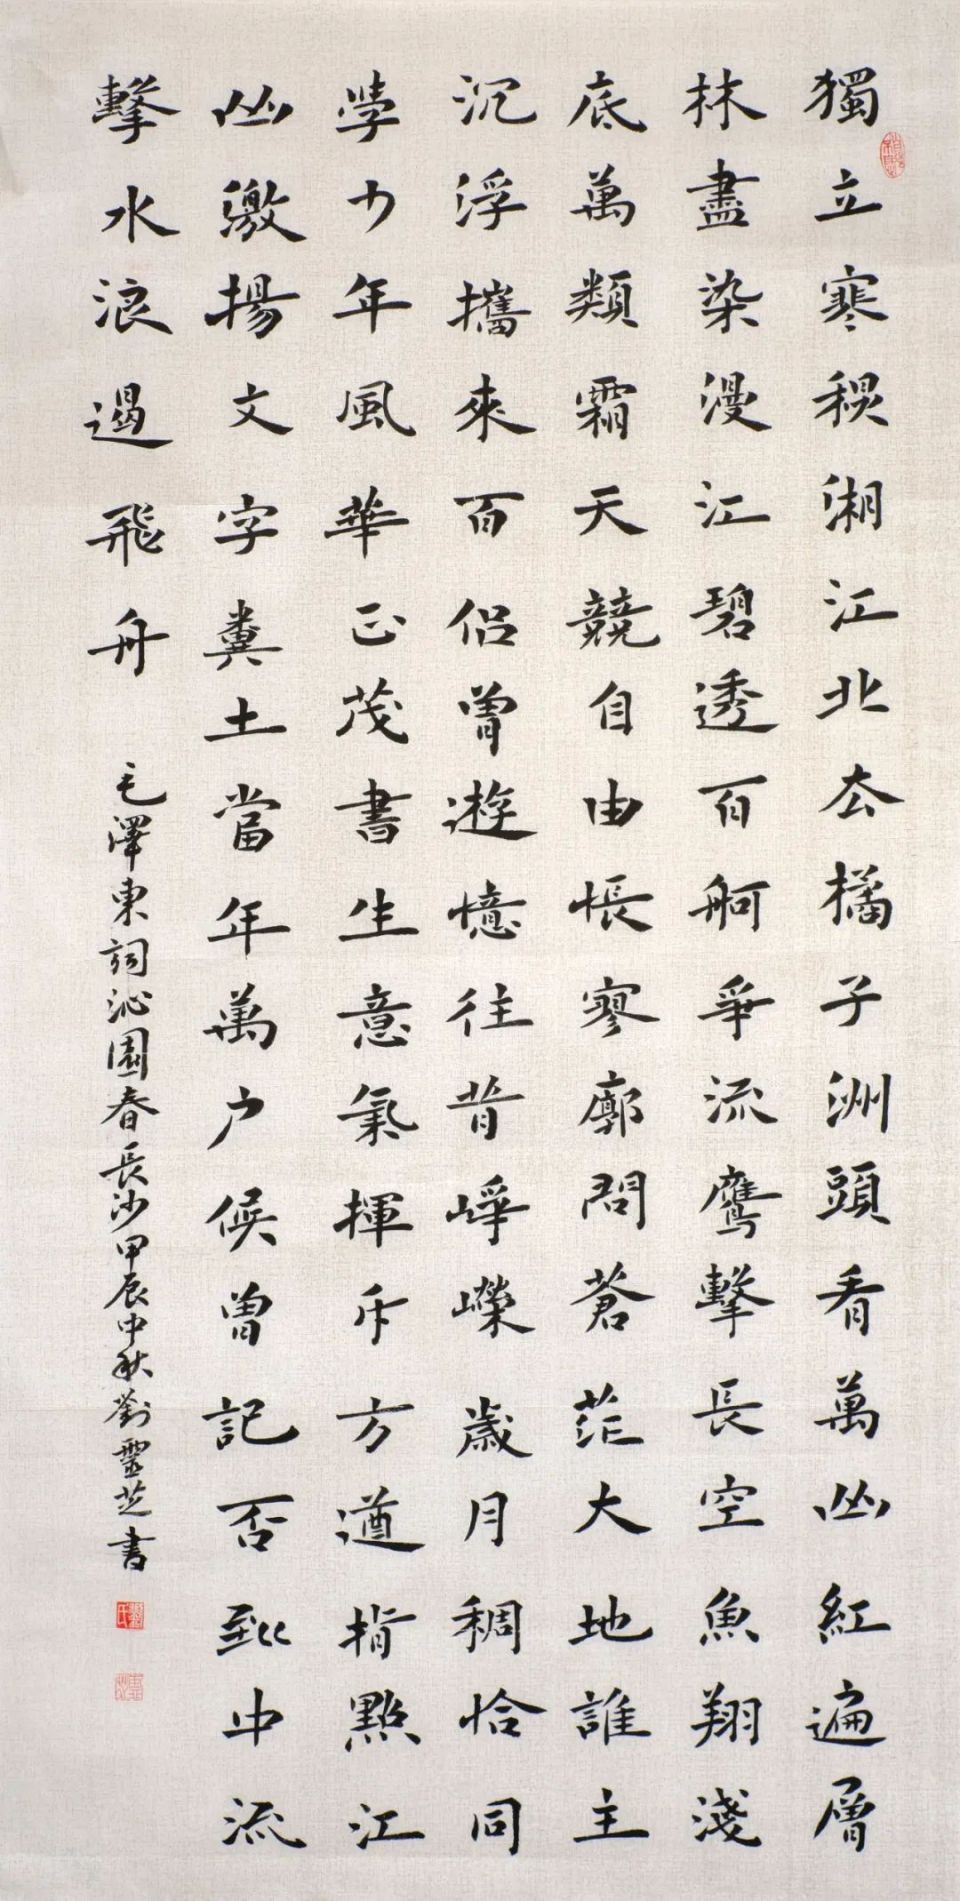 獨立寒秋湘江北去橘子洲頭看萬山紅遍層
林盡染漫江碧透百舸爭流鷹擊長空魚翔淺
底萬類霜天競自由悵寥廓問蒼茫大地誰主
沉浮攜來百侶曾遊憶往昔崢嶸歲月稠恰同
學少年風華正茂書生意氣揮斥方遒指點江
山激揚文字糞土當年萬户候曾記否到中流
擊水浪遏飛舟
毛澤東詞沁園春長沙甲辰中秋劉靈芝書